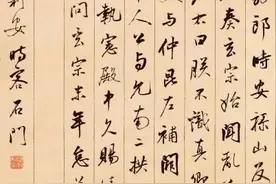 郎時安祿山反
奏玄宗始聞亂
太曰朕不識真卿
与仲昆左補闕
人公与允南二
執憲殿中久賜
問玄宗末年怠
時客石門